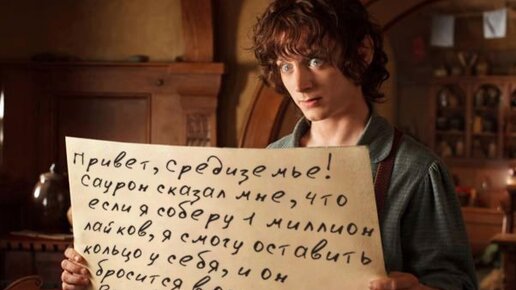 Привет, Средиземье!
Саурон сказал мне, что
если я соберу 1 миллион
лайков, я смогу оставить
кольцо у себя, и он
бросится